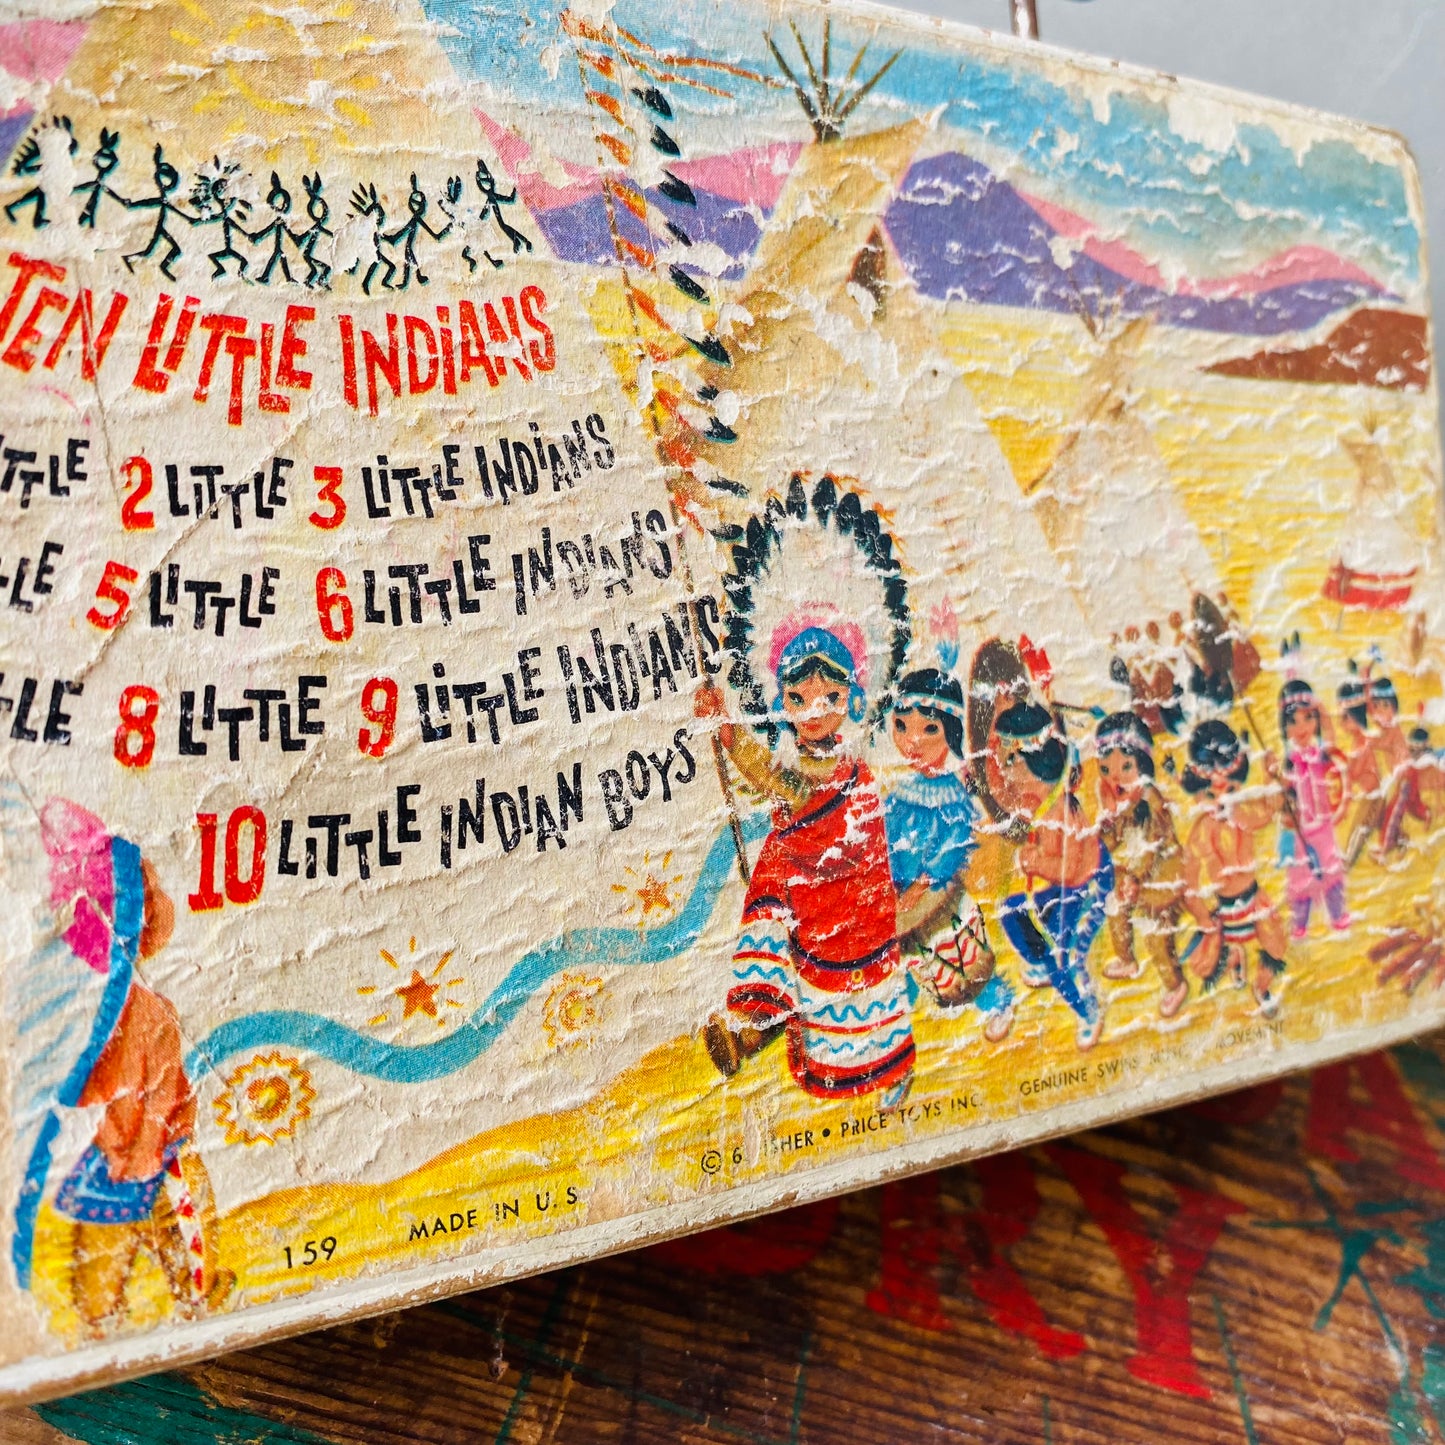 TEN LITTLE INDIANS
2 LITTLE 3 LITTLE INDIANS
5 LITTLE 6 LITTLE INDIANS
8 LITTLE 9 LITTLE INDIANS
10 LITTLE INDIAN BOYS
159 MADE IN U.S
© 6 PRICE TOYS INC. GENUINE SWISS